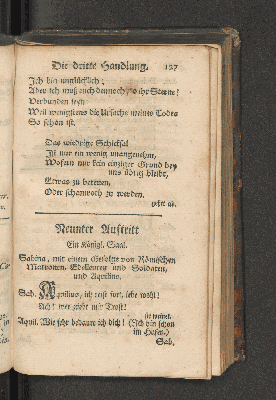 Die dritte Handlung. 127
Ich bin unglücklich;
Aber ich muß auch dennoch, o ihr Sterne!
Verbunden seyn
Weil wenigstens die Ursache meines Todes
So schön ist.
Das widrige Schicksal
Ist nur ein wenig unangenehm,
Wofern nur kein einziger Grund bey
uns übrig bleibt,
Etwas zu bereuen,
Oder schamroth zu werden.
gehet ab.
Neunter Auftritt
Ein Königl. Saal.
Sabina, mit einem Gefolge von Römischen
Matronen, Edelleuten und Soldaten,
und Aquilius.
Sab. Aquilius, ich reise fort, lebe wohl!
Ach! wer giebt mir Trost!
sie weinet.
Aquil. Wie sehr bedaure ich dich! (Ich bin schon
im Hafen.)
Sab.